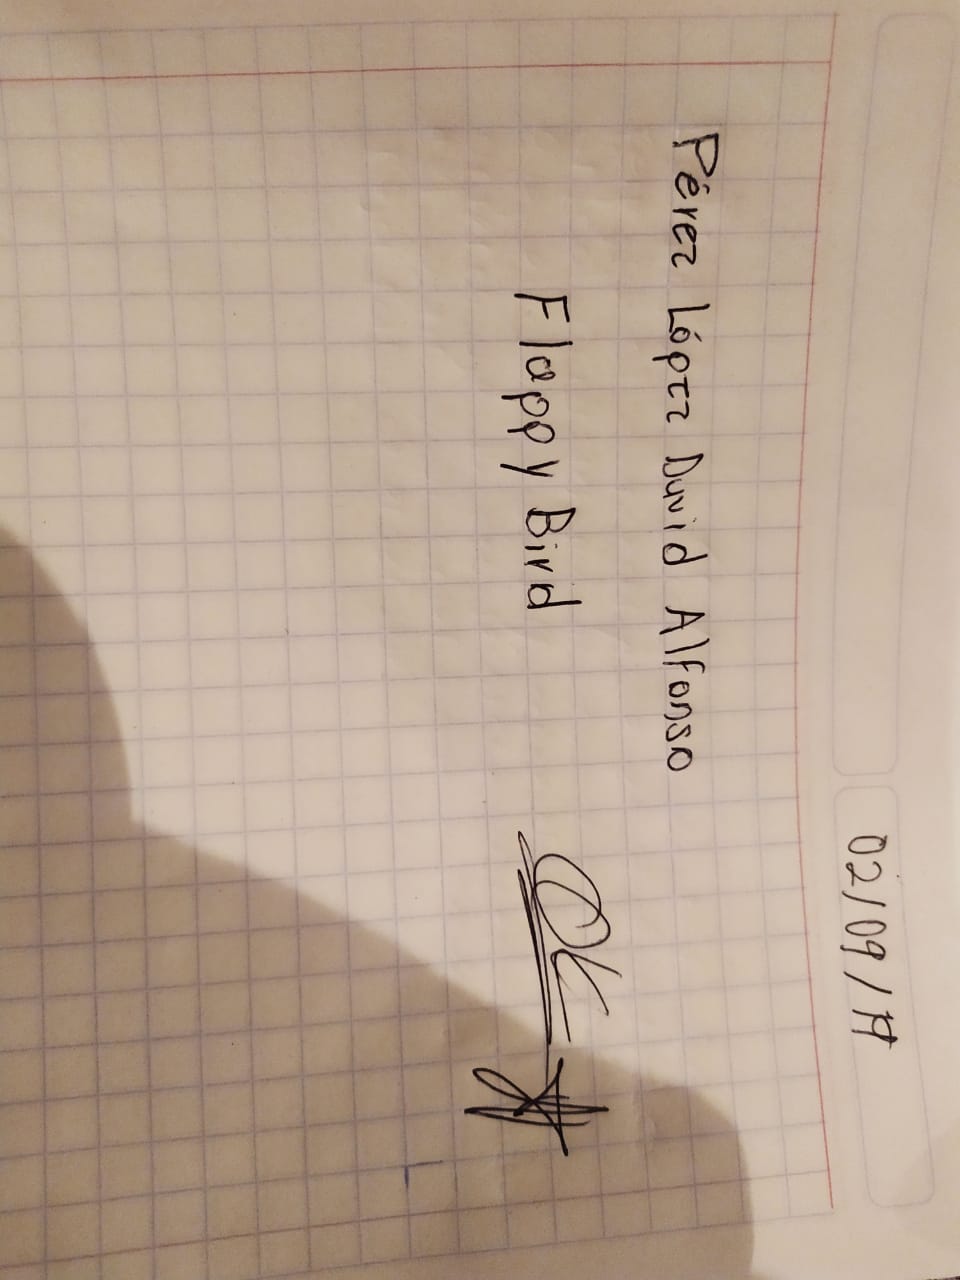 02/09/17
Pérez López David Alfonso
Flappy Bird
OK